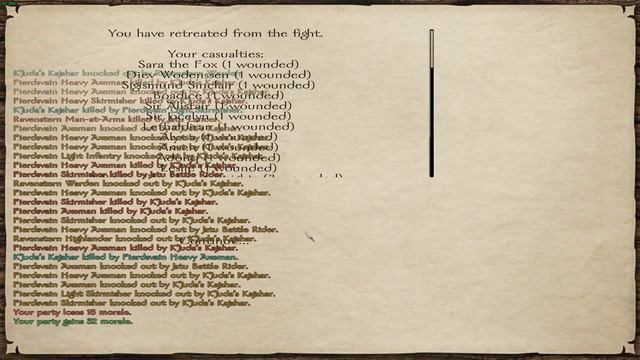 You have retreated from the fight.
Your casualties:
Sara the Fox (1 wounded)
Diev Wodenssen (1 wounded)
Sigismund Sinclair (1 wounded)
Boadice (1 wounded)
Sir Alistair (1 wounded)
Sir Jocelyn (1 wounded)
Lethaldiran (1 wounded)
(1 wounded)
(1 wounded)
(1 wounded)
K'Juda's Kajahar knocked
Fierdsvain Heavy Axeman killed by
Fierdsvain Heavy Axeman knocked
Fierdsvain Heavy Skirmisher killed by K'Juda's Kajahar.
K'Juda's Kajahar killed by Fierdsvain Light Skirmisher.
Ravenstern Man-at-Arms killed by
Fierdsvain Axeman knocked
Fierdsvain Heavy Axeman knocked
Fierdsvain Heavy Axeman knocked
Fierdsvain Light Infantry knocked
Fierdsvain Heavy Axeman killed by K'Juda's Kajahar.
Fierdsvain Skirmisher killed by Jatu Battle Rider.
Ravenstern Warden knocked out by K'Juda's Kajahar.
Fierdsvain Heavy Axeman knocked out by K'Juda's Kajahar.
Fierdsvain Skirmisher killed by K'Juda's Kajahar.
Fierdsvain Axeman killed by K'Juda's Kajahar.
Fierdsvain Skirmisher knocked out by K'Juda's Kajahar.
Fierdsvain Heavy Axeman knocked out by Jatu Battle Rider.
Ravenstern Highlander knocked out by K'Juda's Kajahar.
Fierdsvain Heavy Axeman killed by K'Juda's Kajahar.
K'Juda's Kajahar killed by Fierdsvain Heavy Axeman.
Fierdsvain Axeman knocked out by Jatu Battle Rider.
Fierdsvain Heavy Axeman knocked out by K'Juda's Kajahar.
Fierdsvain Axeman knocked out by K'Juda's Kajahar.
Fierdsvain Light Skirmisher knocked out by K'Juda's Kajahar.
Fierdsvain Skirmisher knocked out by K'Juda's Kajahar.
Continue...
Your party loses 18 morale.
Your party gains 32 morale.